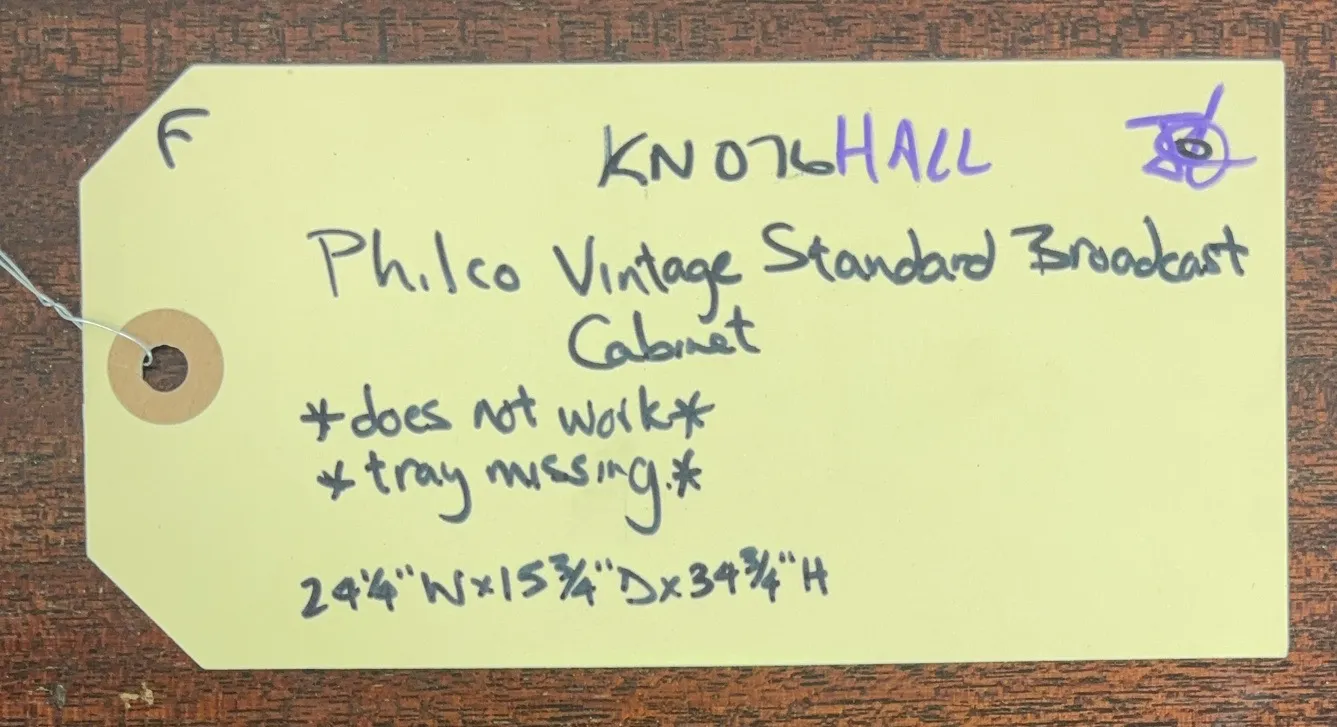 F
KN076 HALL
Philco Vintage Standard Broadcast
Cabinet
*does not work*
*tray missing.*
24 1/4" W x 15 3/4" D x 34 3/4" H